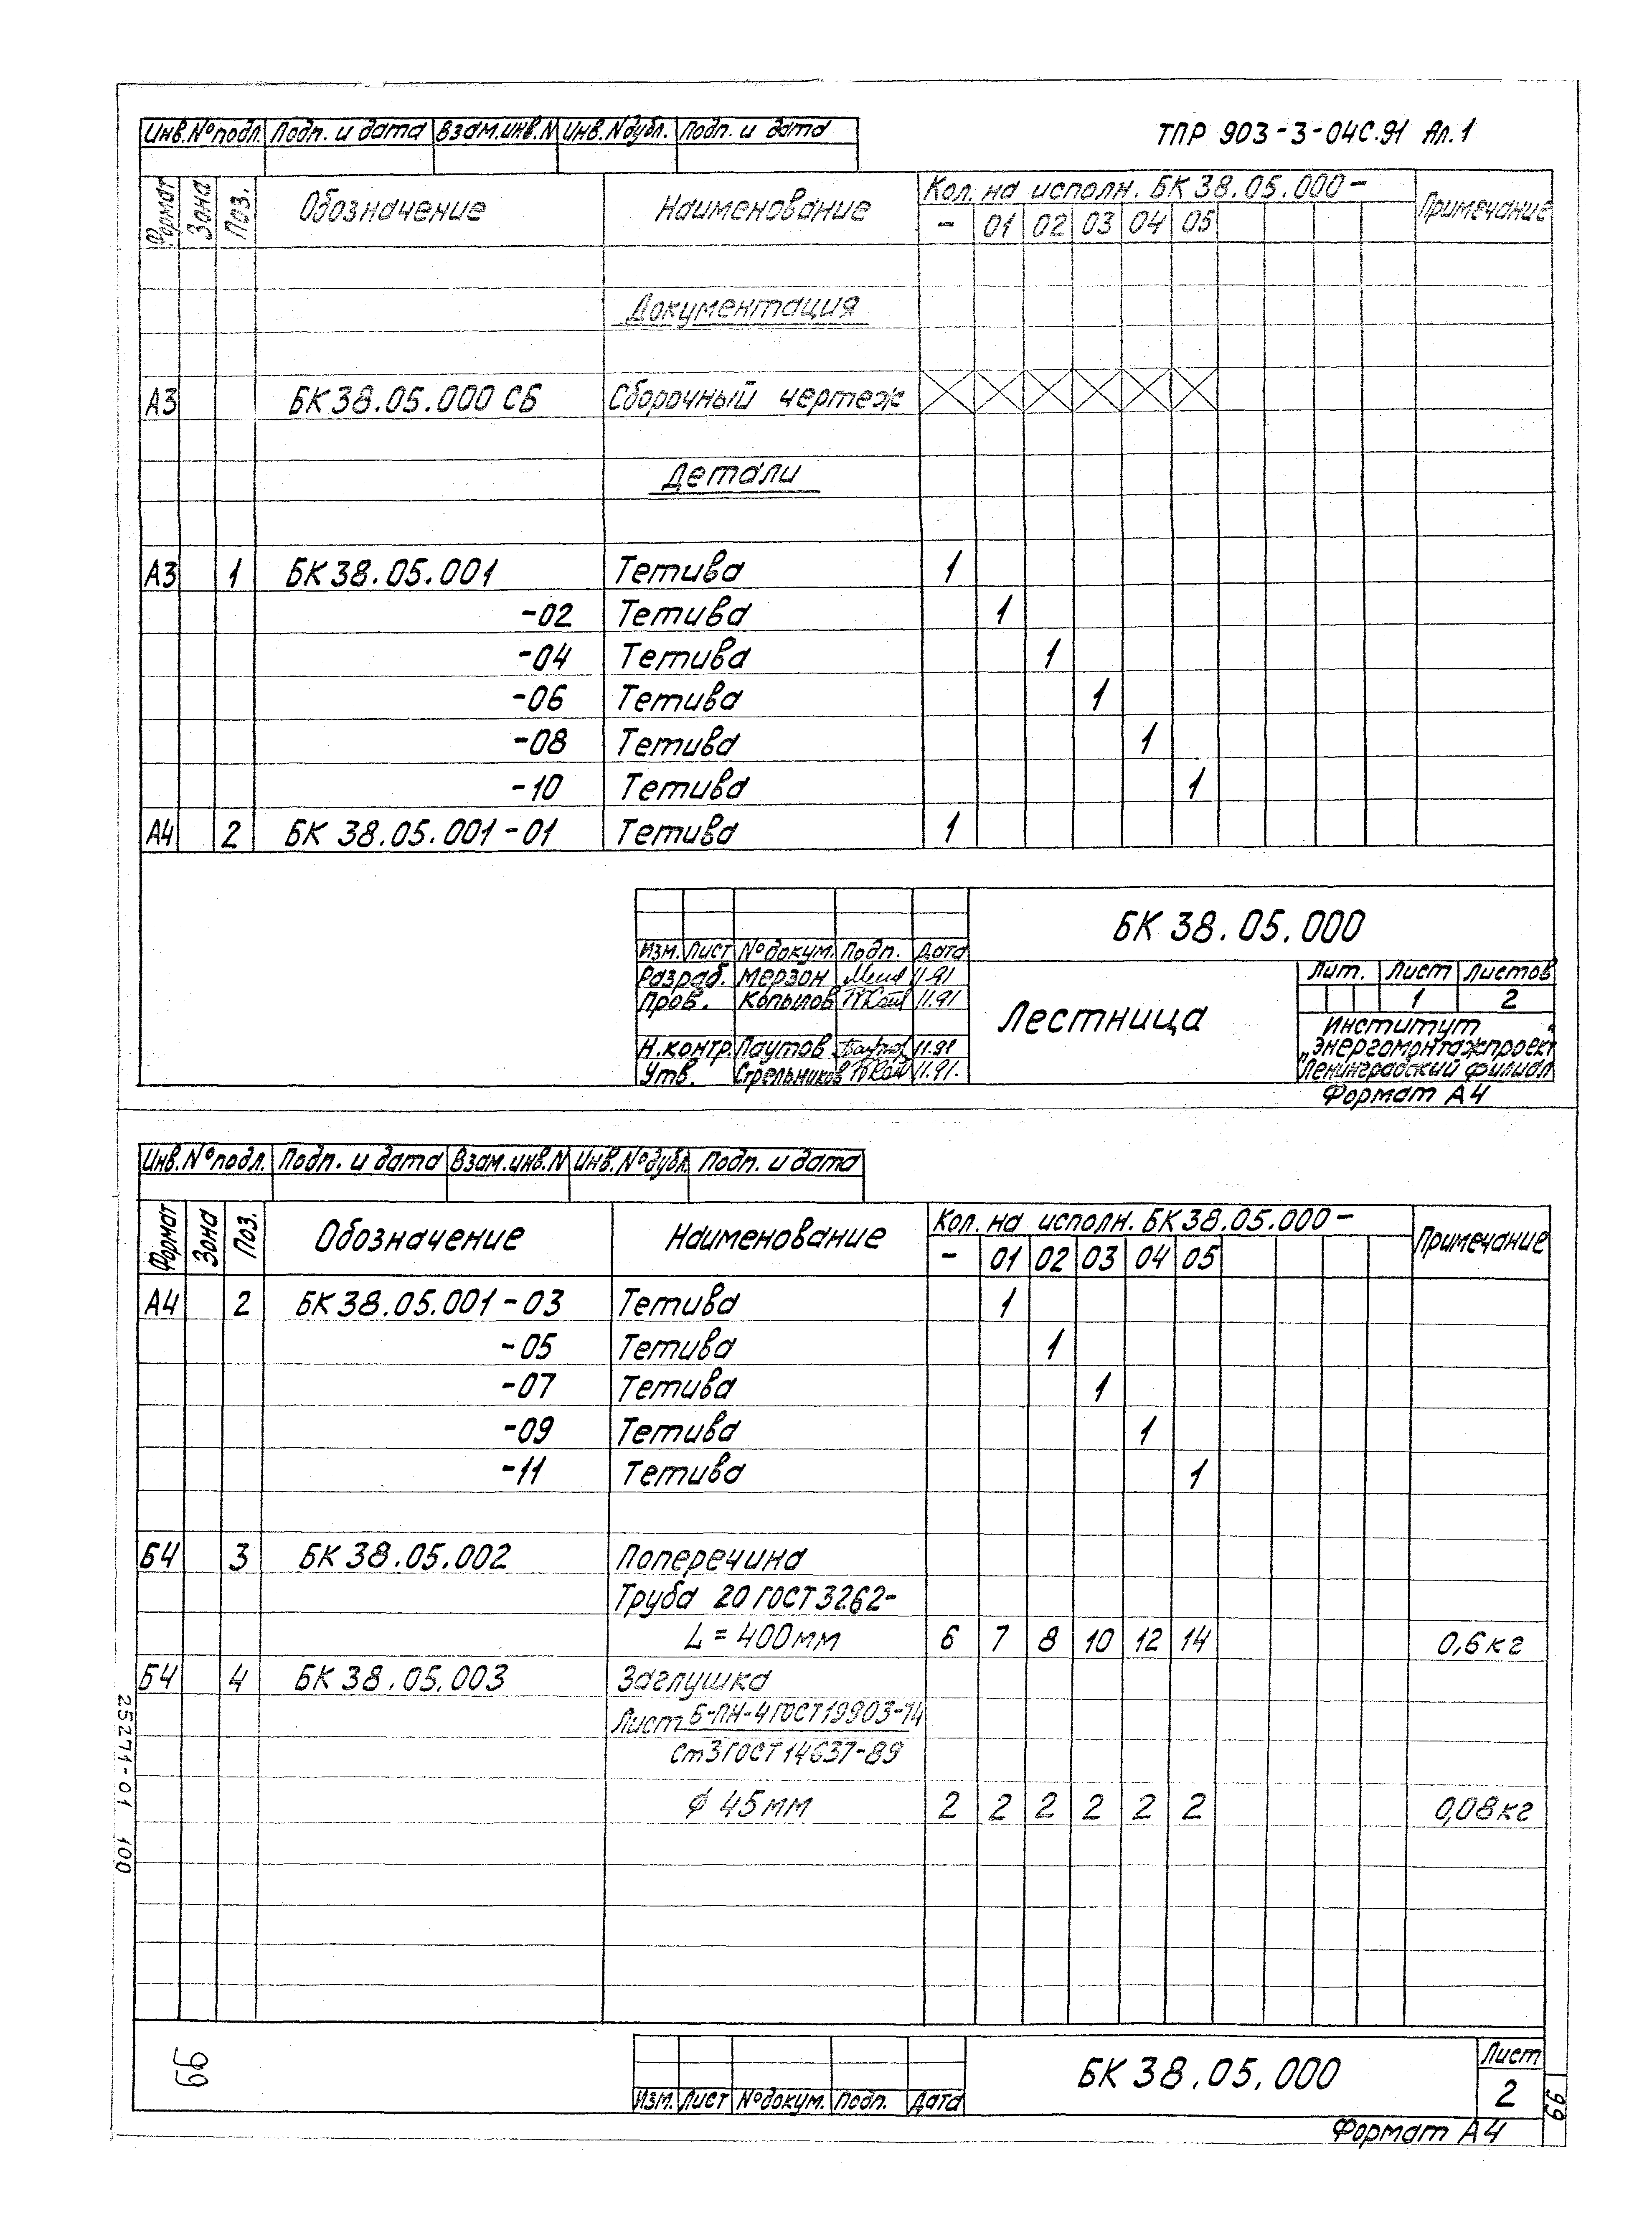 Инв.№подл. Подп. и дата Взам.инв.N Инв.Nдубл. Подп. и дата
ТПР 903-3-04С.91 Ал.1
Формат Зона Поз. Обозначение Наименование Кол. на исполн. БК 38.05.000- Примечание
- 01 02 03 04 05
Документация
А3 БК 38.05.000 СБ Сборочный чертеж
Детали
А3 1 БК 38.05.001 Тетива 1
-02 Тетива 1
-04 Тетива 1
-06 Тетива 1
-08 Тетива 1
-10 Тетива 1
А4 2 БК 38.05.001-01 Тетива 1
БК 38.05.000
Изм. Лист №докум. Подп. Дата
Разраб. Мерзон 11.91
Пров. Копылов 11.91
Н.контр. Паутов 11.91
Утв. Стрельников 11.91.
Лестница
Лит. Лист Листов
1 2
Институт
"Энергомонтажпроект"
Ленинградский филиал
Формат А4
Инв.№подл. Подп. и дата Взам.инв.N Инв.№дубл Подп. и дата
Формат Зона Поз. Обозначение Наименование Кол. на исполн. БК 38.05.000- Примечание
- 01 02 03 04 05
А4 2 БК 38.05.001-03 Тетива 1
-05 Тетива 1
-07 Тетива 1
-09 Тетива 1
-11 Тетива 1
Б4 3 БК 38.05.002 Поперечина
Труба 20 ГОСТ 3262-
L = 400мм 6 7 8 10 12 14 0,6 кг
Б4 4 БК 38.05.003 Заглушка
Лист Б-ПН-4 ГОСТ 19903-74
Ст3 ГОСТ 14637-89
ϕ 45мм 2 2 2 2 2 2 0,08кг
25271-01 100
99
Изм. Лист №докум. Подп. Дата
БК 38.05.000
Лист
2
99
Формат А4